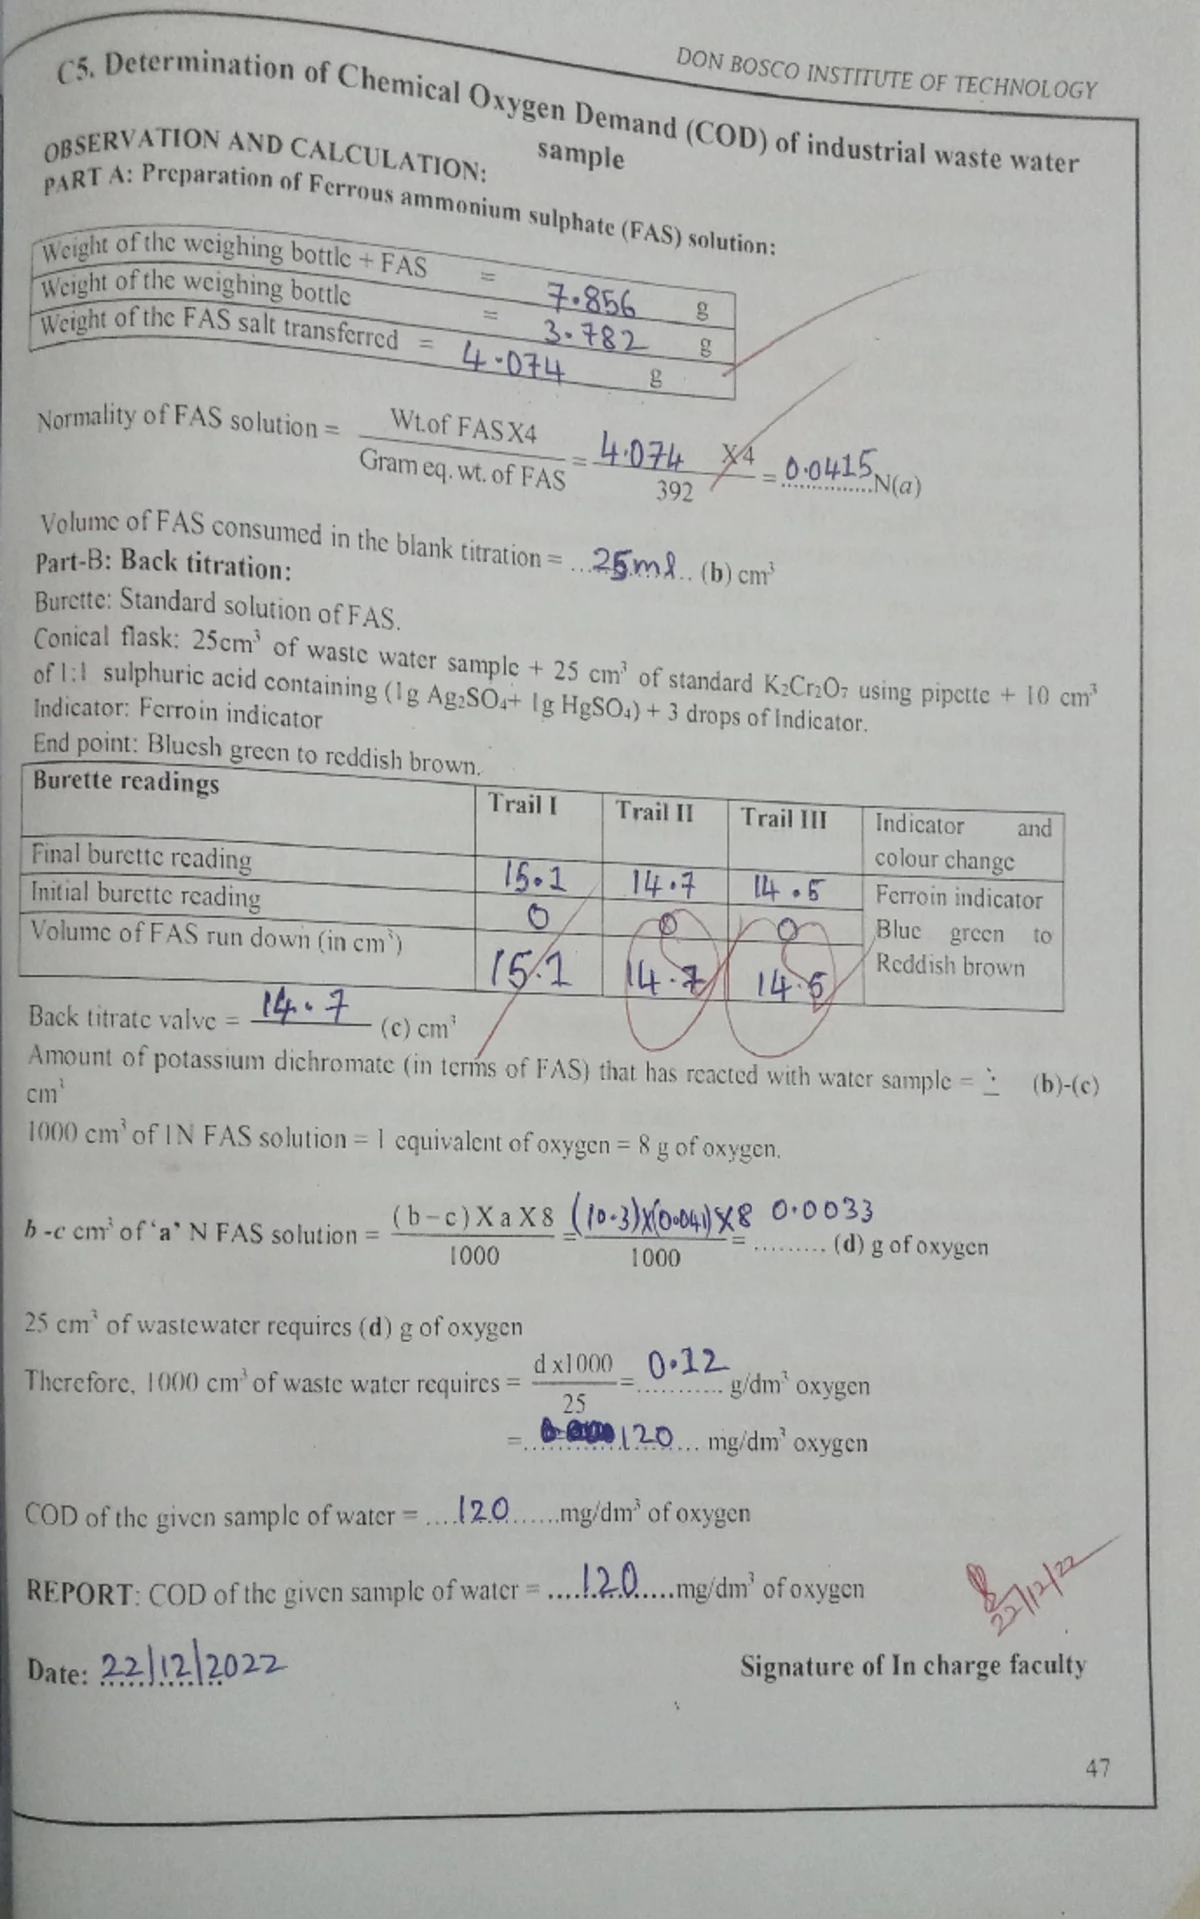 DON BOSCO INSTITUTE OF TECHNOLOGY
C5. Determination of Chemical Oxygen Demand (COD) of industrial waste water
sample
OBSERVATION AND CALCULATION:
PART A: Preparation of Ferrous ammonium sulphate (FAS) solution:
Weight of the weighing bottle + FAS = 7.856 g
Weight of the weighing bottle = 3.782 g
Weight of the FAS salt transferred = 4.074 g
Normality of FAS solution = Wt.of FASX4 / Gram eq. wt. of FAS = 4.074 X4 / 392 = 0.0415 N(a)
Volume of FAS consumed in the blank titration = ...25ml.. (b) cm³
Part-B: Back titration:
Burette: Standard solution of FAS.
Conical flask: 25cm³ of waste water sample + 25 cm³ of standard K₂Cr₂O₇ using pipette + 10 cm³
of 1:1 sulphuric acid containing (1g Ag₂SO₄+ 1g HgSO₄) + 3 drops of Indicator.
Indicator: Ferroin indicator
End point: Bluesh green to reddish brown.
Burette readings Trail I Trail II Trail III Indicator and
colour change
Final burette reading 15.1 14.7 14.5 Ferroin indicator
Initial burette reading 0 0 0 Blue green to
Volume of FAS run down (in cm³) 15.1 14.7 14.5 Reddish brown
Back titrate valve = 14.7 (c) cm³
Amount of potassium dichromate (in terms of FAS) that has reacted with water sample = (b)-(c)
cm³
1000 cm³ of 1N FAS solution = 1 equivalent of oxygen = 8 g of oxygen.
b -c cm³ of 'a' N FAS solution = (b-c)XaX8 / 1000 = (10.3)X(0.041)X8 / 1000 = 0.0033 ......... (d) g of oxygen
25 cm³ of wastewater requires (d) g of oxygen
Therefore, 1000 cm³ of waste water requires = d x1000 / 25 = 0.12 g/dm³ oxygen
= 120... mg/dm³ oxygen
COD of the given sample of water = ....120......mg/dm³ of oxygen
REPORT: COD of the given sample of water = ....120.....mg/dm³ of oxygen
22/12/22
Date: 22/12/2022
Signature of In charge faculty
47